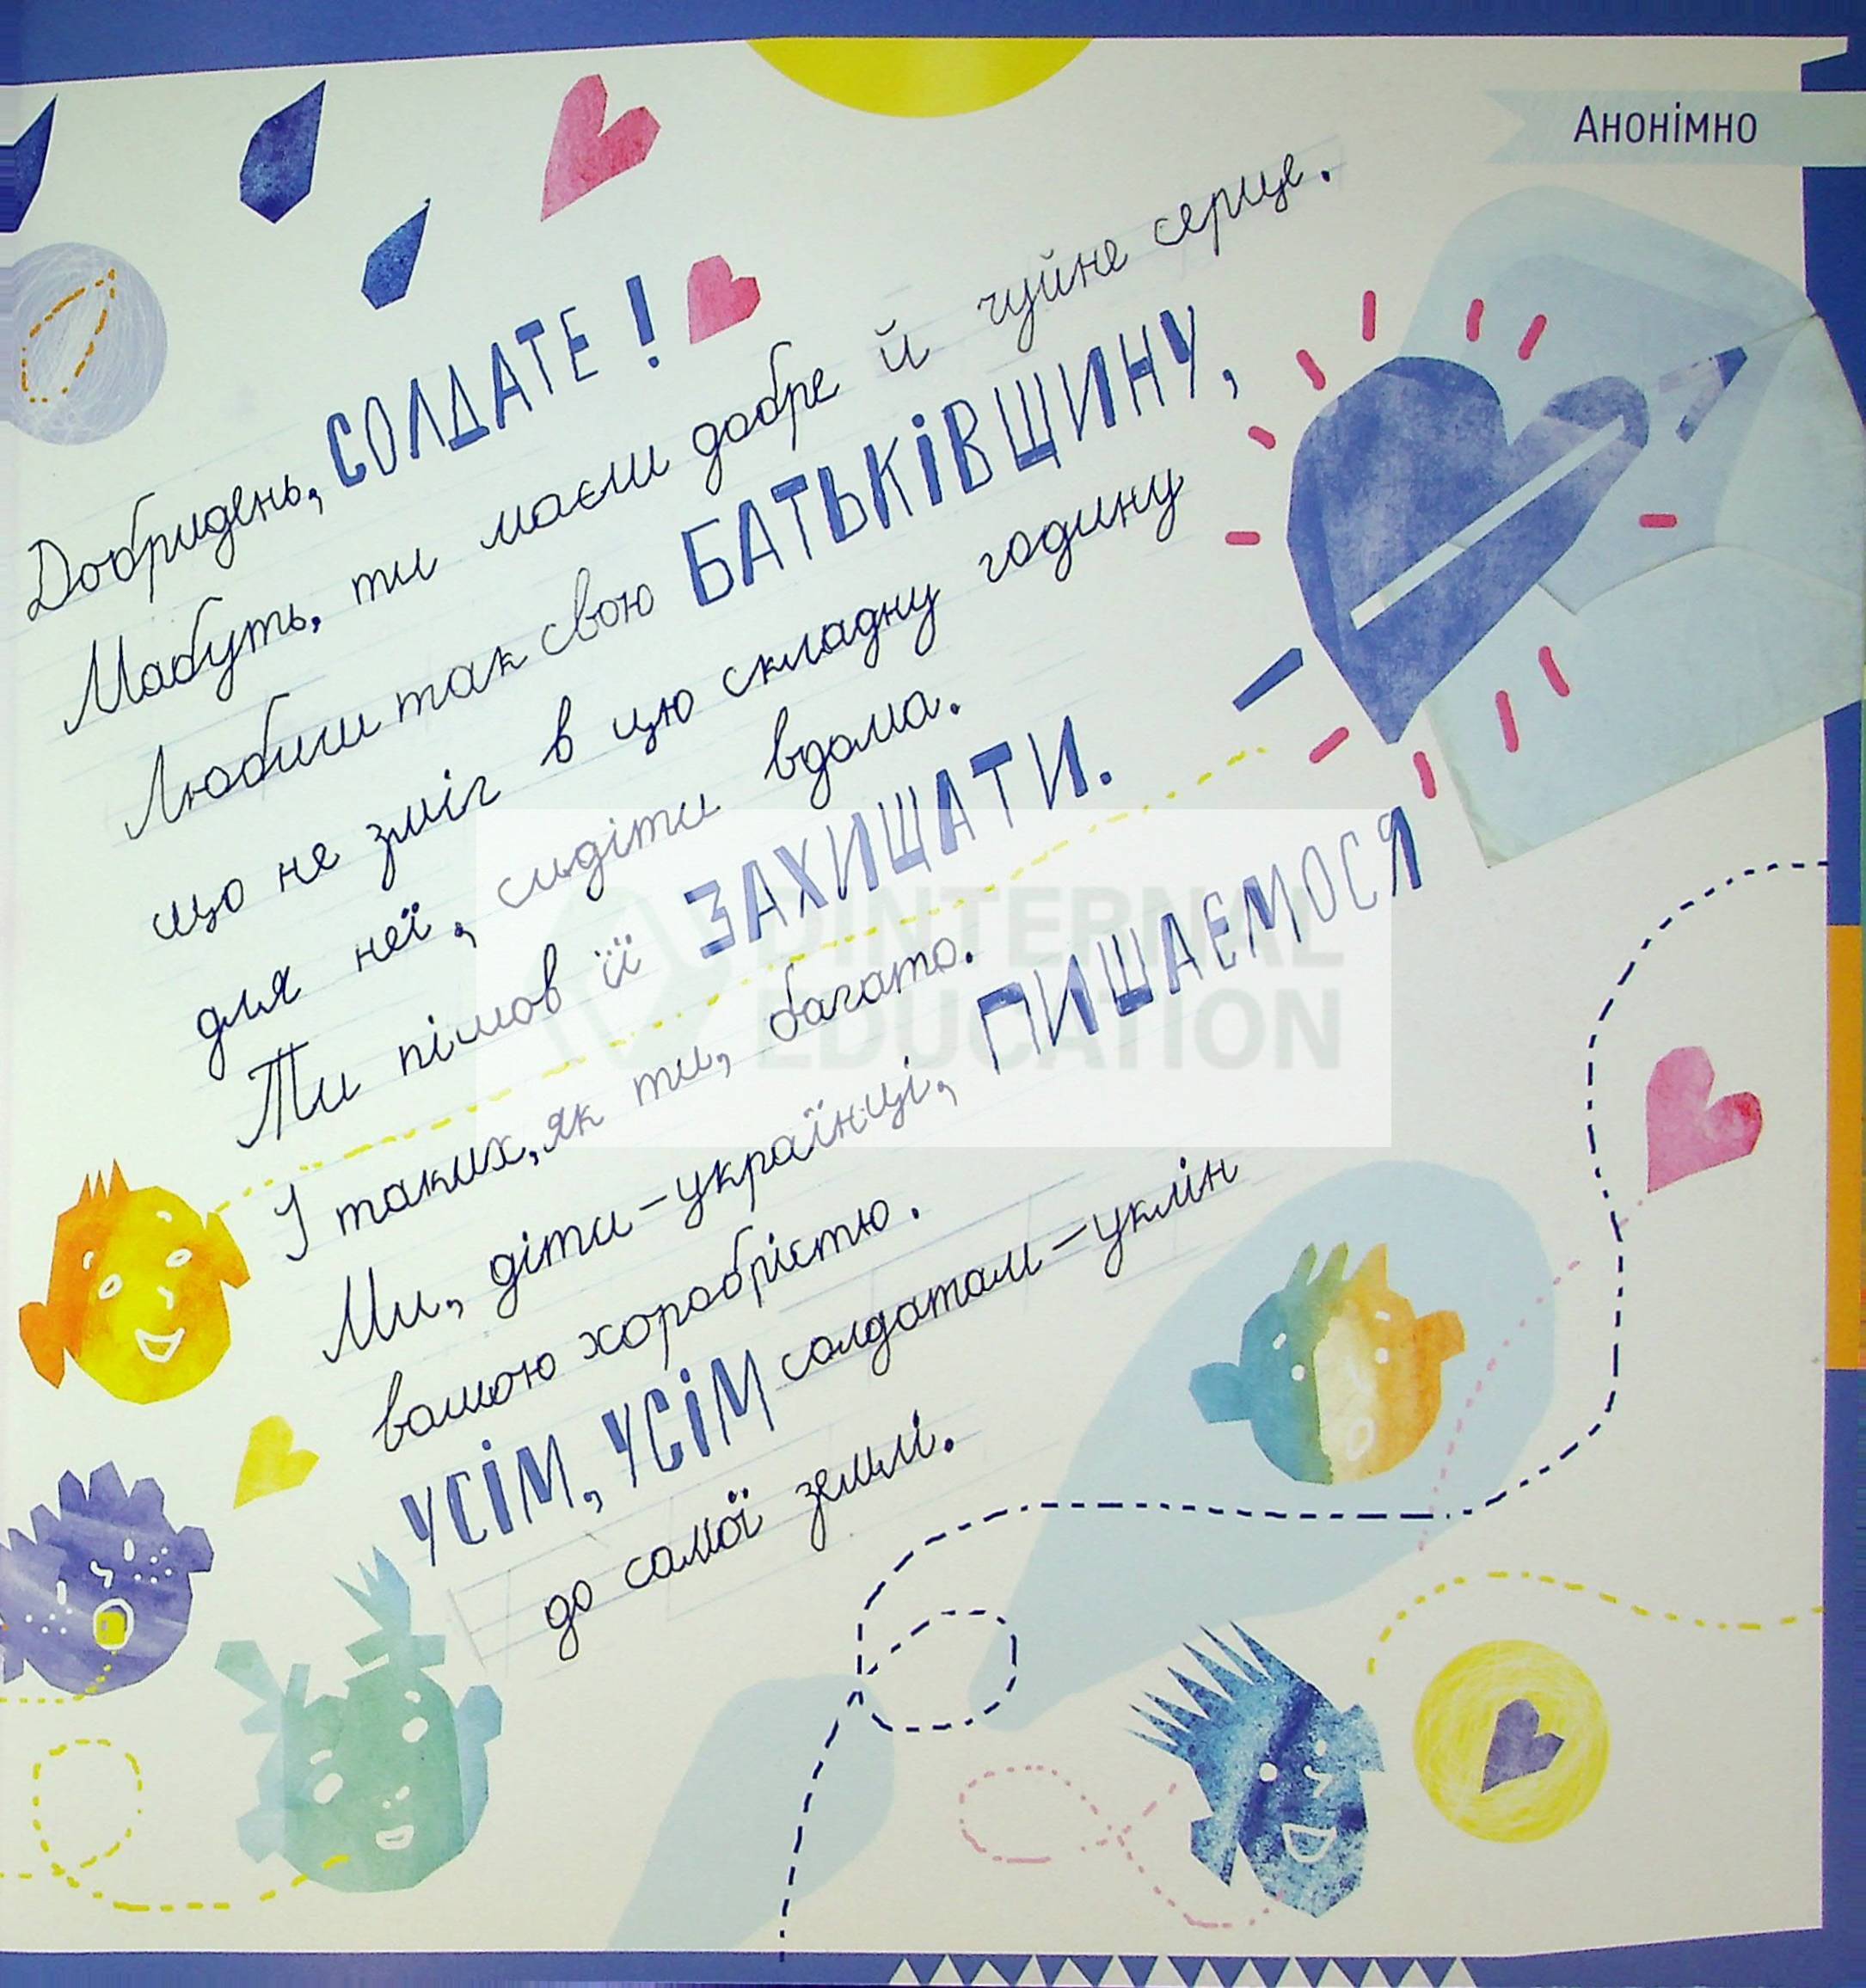 Анонімно
Добридень, СОЛДАТЕ!
Мабуть, ти маєш добре й чуйне серце.
Любиш так свою БАТЬКІВЩИНУ,
що не зміг в цю складну годину
для неї, сидіти вдома.
Ти пішов її ЗАХИЩАТИ.
І таких, як ти, багато.
Ми, діти-українці, ПИШАЄМОСЯ
вашою хоробрістю.
УСІМ, УСІМ солдатам-уклін
до самої землі.
DINTERNAL
EDUCATION